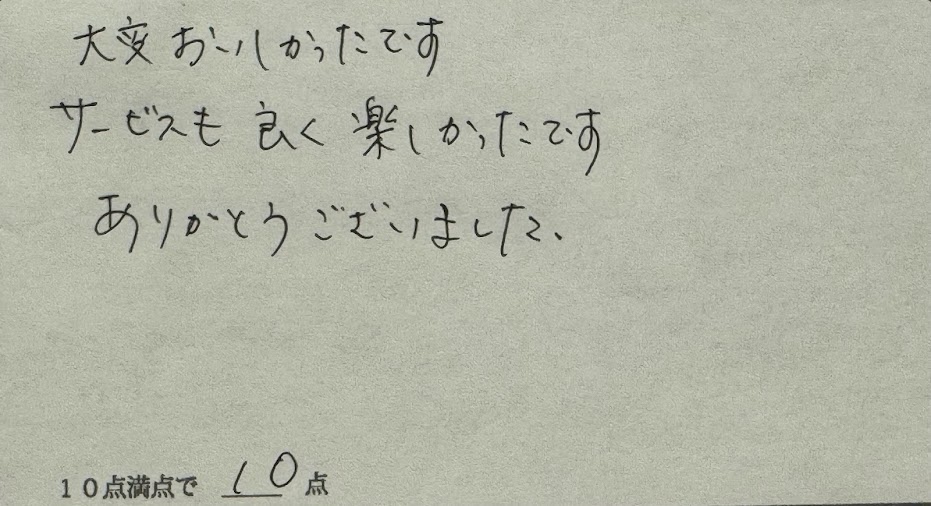 大変おいしかったです
サービスも良く楽しかったです
ありがとうございました、
10点満点で 10点